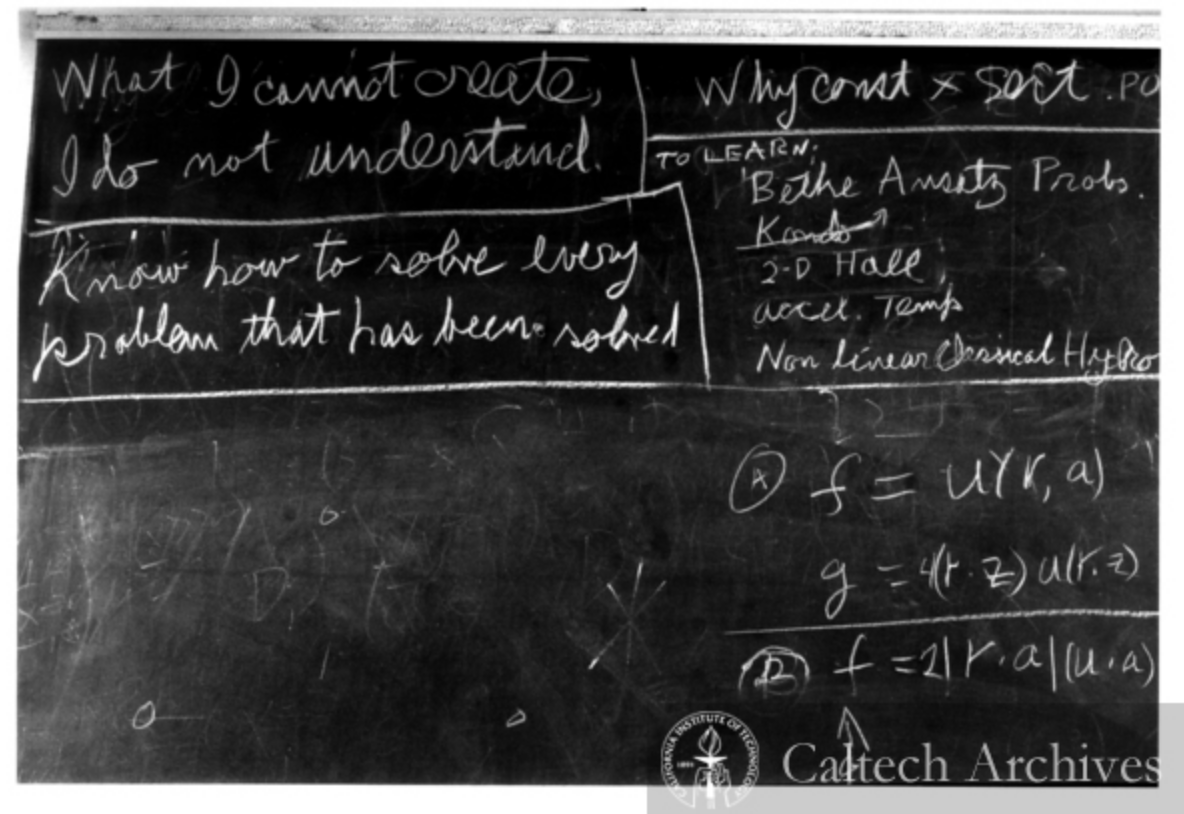 What I cannot create,
I do not understand.
Know how to solve every
problem that has been solved
Why const × sort . PO
TO LEARN:
Bethe Ansatz Probs.
Kondo
2-D Hall
accel. Temp
Non linear Classical Hydro
A f = u(r, a)
g = 4(r·z) u(r·z)
B f = 2|r·a|(u·a)
CALIFORNIA INSTITUTE OF TECHNOLOGY
1891
Caltech Archives